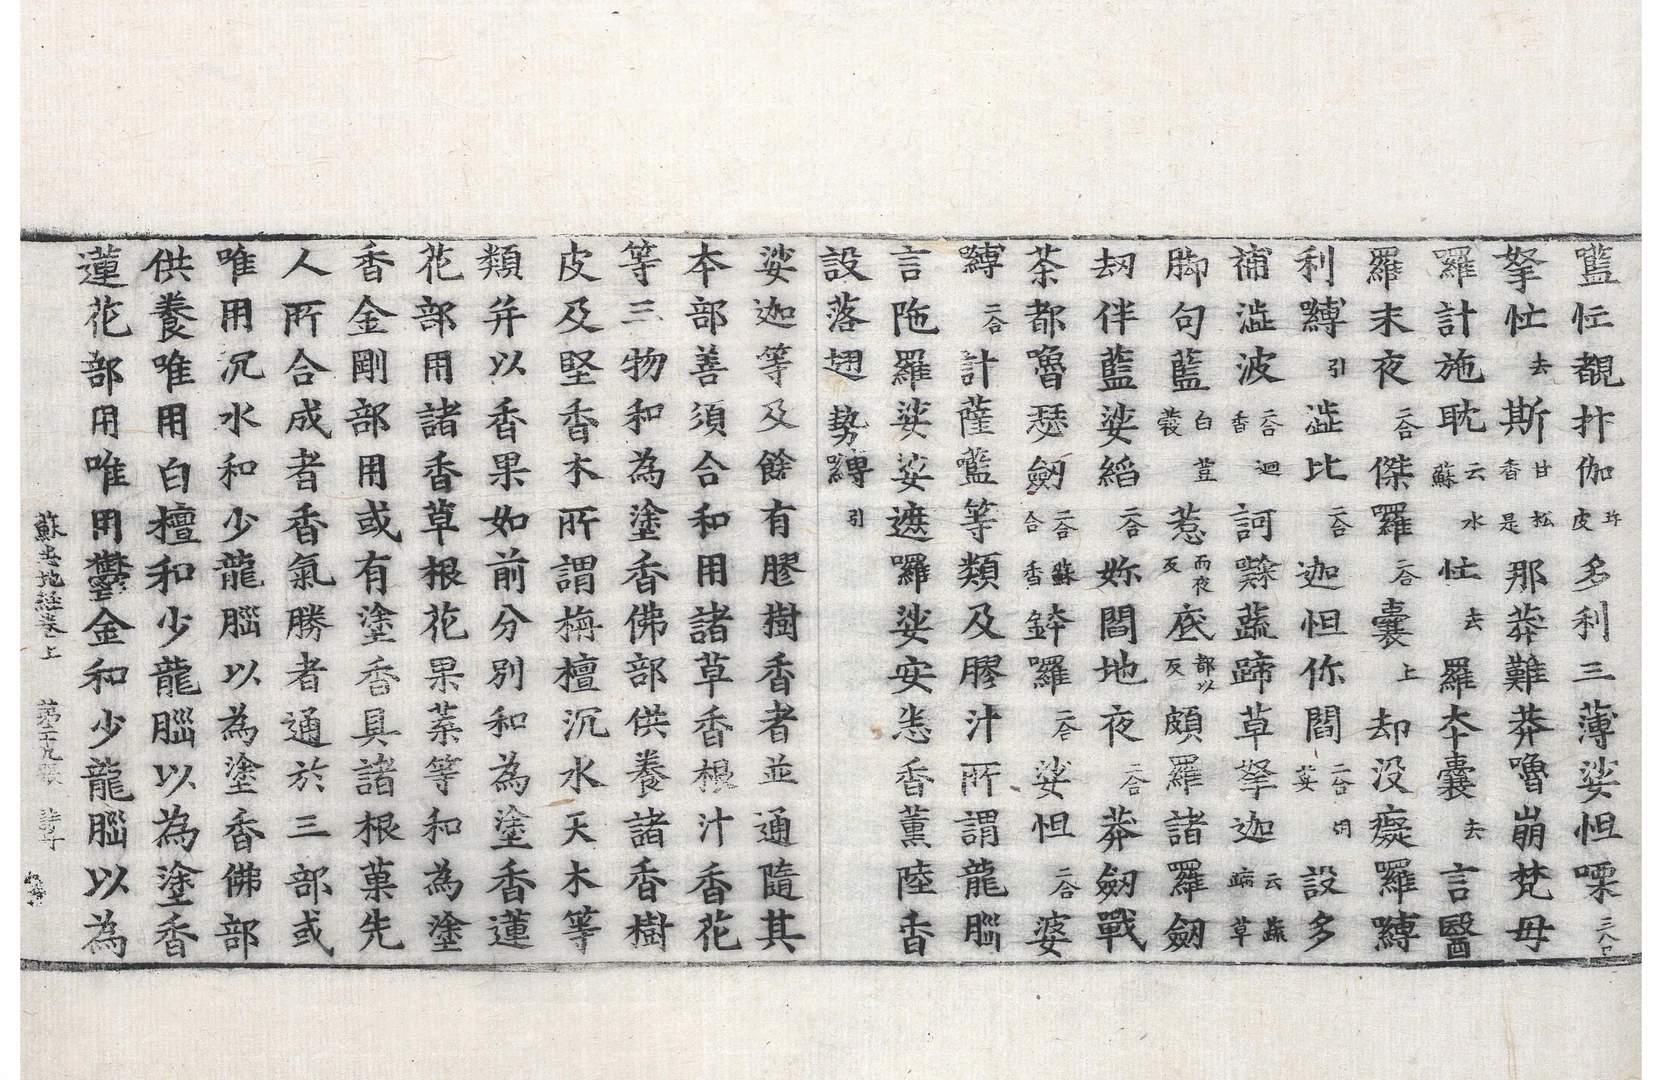 藍忙覩拤伽皮䇮多利三薄娑怛㗚二合
拏忙去斯甘松香是那莽難莽嚕崩梵毋
羅計施耽云水蘇忙去羅夲囊去言醫
羅末夜二合傑羅二合囊上却没癡羅嚩
利嚩引澁比二合迦怛你閻二合設多
補澁波二合迴香訶蔬蹄草拏迦云蔬草
脚句藍白荳蔲惹而夜反底都以反頗羅諸羅劒
刼伴藍娑縚二合妳閻地夜二合莽劒戰
荼都嚕瑟劒二合蘇合香鉢囉二合娑怛二合婆
嚩二合計薩藍等類及膠汁所謂龍腦
言陁羅娑娑遮囉娑安悉香薰陸香
設落翅勢嚩引
娑迦等及餘有膠樹香者並通隨其
夲部善須合和用諸草香根汁香花
等三物和為塗香佛部供養諸香樹
皮及堅香木所謂栴檀沉水天木等
類并以香果如前分別和為塗香蓮
花部用諸香草根花果葉等和為塗
香金剛部用或有塗香具諸根菓先
人所合成者香氣勝者通於三部或
唯用沉水和少龍腦以為塗香佛部
供養唯用白檀和少龍腦以為塗香
蓮花部用唯用鬱金和少龍腦以為
蘇悉地經卷上 第十九張 詩字